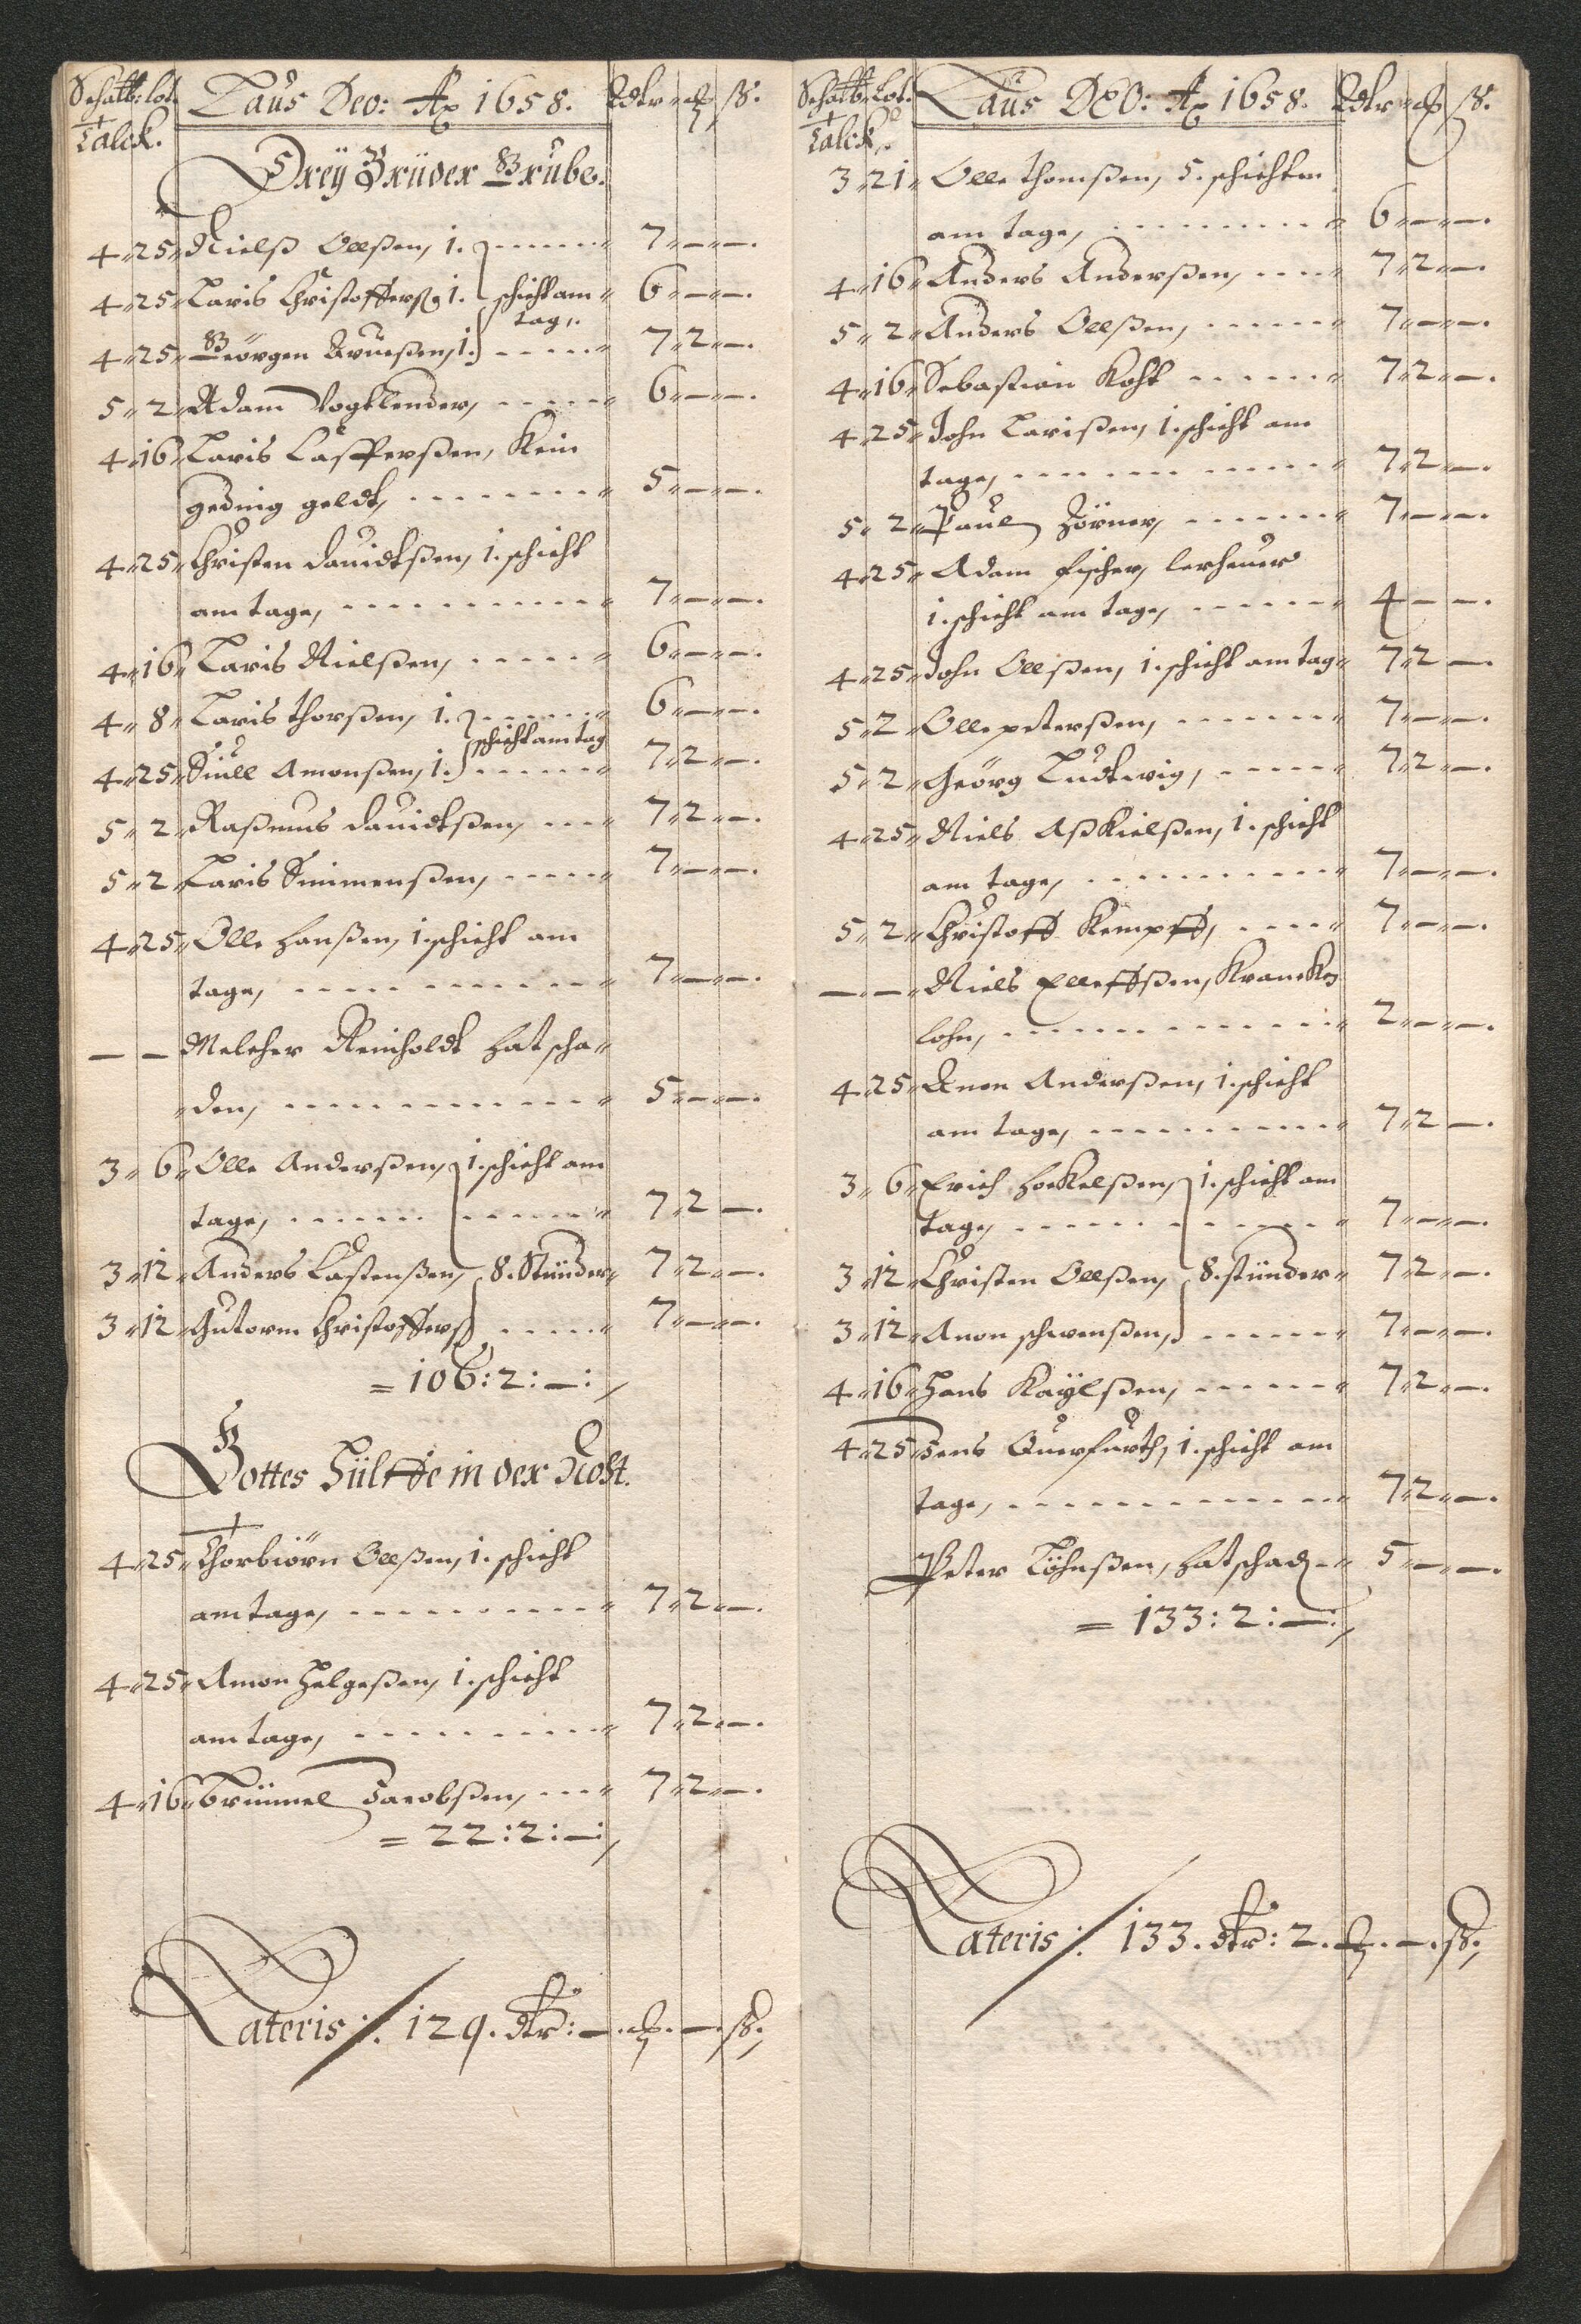 Schatt: lot.
Talck.
Laus Deo: Ao 1658. Rdtr ß.
Dreÿ Brüder Grube.
4 25 Nielß Ollßen, 1. 7 — —.
4 25 Laris Christofferß 1. schicht am 6 — —.
tag.
4 25 Geörgen Arneßen, 1. 7 2 —.
5 2 Adam Vogtlender, 6 — —.
4 16 Laris Casperßen, Kein
geding geldt, 5 — —.
4 25 Christen Dauidtßen, 1. schicht
am tage, 7 — —.
4 16 Laris Nielßen, 6 — —.
4 8 Laris Thorßen, 1. 6 — —.
schicht am tag
4 25 Siull Amonßen, 1. 7 2 —.
5 2 Raßmus Dauidtßen, 7 2 —.
5 2 Laris Simmenßen, 7 — —.
4 25 Olle Hanßen, 1. schicht am
tage, 7 — —.
— — Melcher Reinholdt hat scha
den, 5 — —.
3 6 Olle Anderßen, 1. schicht am
tage, 7 2 —.
3 12 Anders Caßtenßen, 8. Stünder 7 2 —.
3 12 Gutorm Christofferß 7 — —.
= 106: 2: —:
Gottes Hülffe in der Noht.
4 25 Thorbiörn Ollßen, 1. schicht
am tage, 7 2 —.
4 25 Amon Helgeßen, 1. schicht
am tage, 7 2 —.
4 16 Brümmel Jacobßen, 7 2 —.
= 22: 2: —:
Lateris ·/. 129. dtr: —. —. ß.
Schatt: Lot.
Talck.
Laus DEO: Ao 1658. Rdtr ß.
3 21 Olle Thomßen, 5. schichten
am tage, 6 — —.
4 16 Anders Anderßen, 7 2 —.
5 2 Anders Ollßen, 7 — —.
4 16 Sebastian Koht 7 2 —.
4 25 John Larißen, 1. schicht am
tage, 7 2 —.
5 2 Paul Hörner, 7 — —.
4 25 Adam Fischer, lerheuer
1. schicht am tage, 4 — —.
4 25 John Ollßen, 1. schicht am tag 7 2 —.
5 2 Olle peterßen, 7 — —.
5 2 Geörg Ludtwig, 7 2 —.
4 25 Niels Aßkielßen, 1. schicht
am tage, 7 — —.
5 2 Christoff Kempff, 7 — —.
— — Niels Elleffßen, Krancken
lohn, 2 — —.
4 25 Anderßen, 1. schicht
am tage, 7 2 —.
3 6 Erich Hoekelßen, 1. schicht am
tage, 7 — —.
3 12 Christen Ollßen, 8. stünder 7 2 —.
3 12 Amon schwenßen, 7 — —.
4 16 Hans Kaÿlßen, 7 2 —.
4 25 Jens Querfurth, 1. schicht am
tage, 7 2 —.
Peter Löhnßen, hat schad 5 — —.
= 133: 2: —:
Lateris ·/. 133. dtr: 2. —. ß.